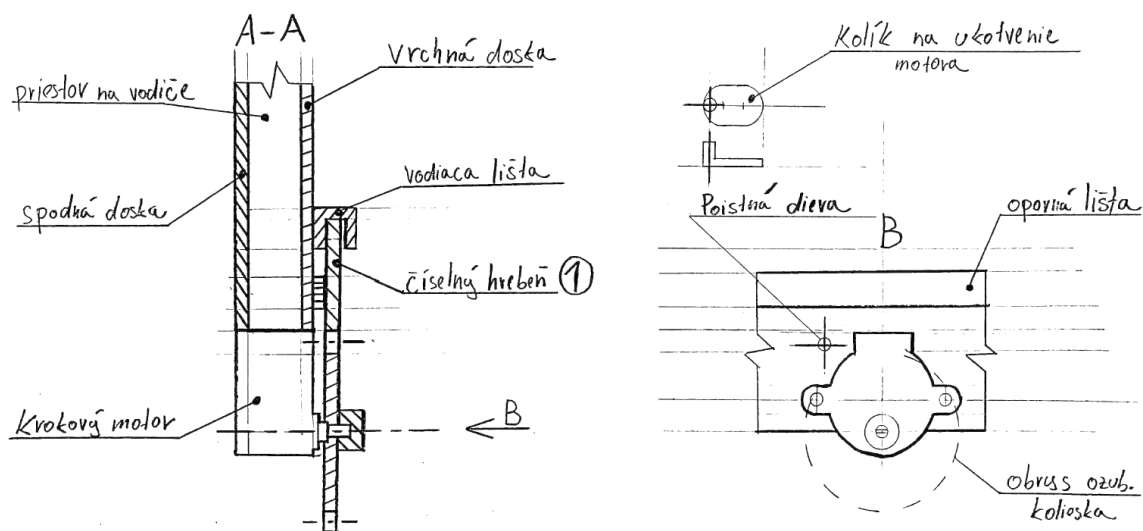 A-A
Vrchná doska
priestov na vodiče
vodiaca lišta
spodná doska
číselný hrebeň 1
Krokový motor
B
Kolík na ukotvenie
motora
Poistná dieva
B
oporná lišta
obryss ozub.
kolieska